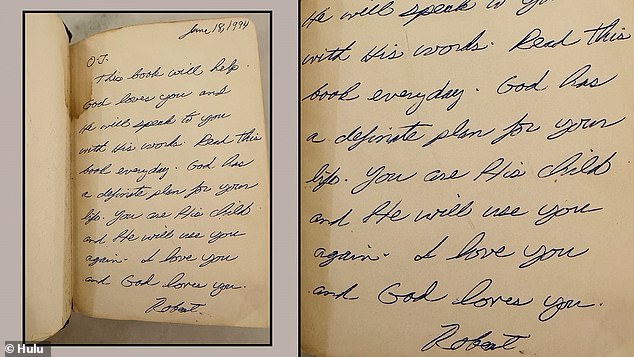 June 18, 1994
O.J.
This book will help.
God loves you and
He will speak to you
with His words. Read this
book everyday. God has
a definate plan for your
life. You are His child
and He will use you
again. I love you
and God loves you.
Robert
He will speak to you
with His words. Read this
book everyday. God has
a definate plan for your
life. You are His child
and He will use you
again. I love you
and God loves you.
Robert
© Hulu